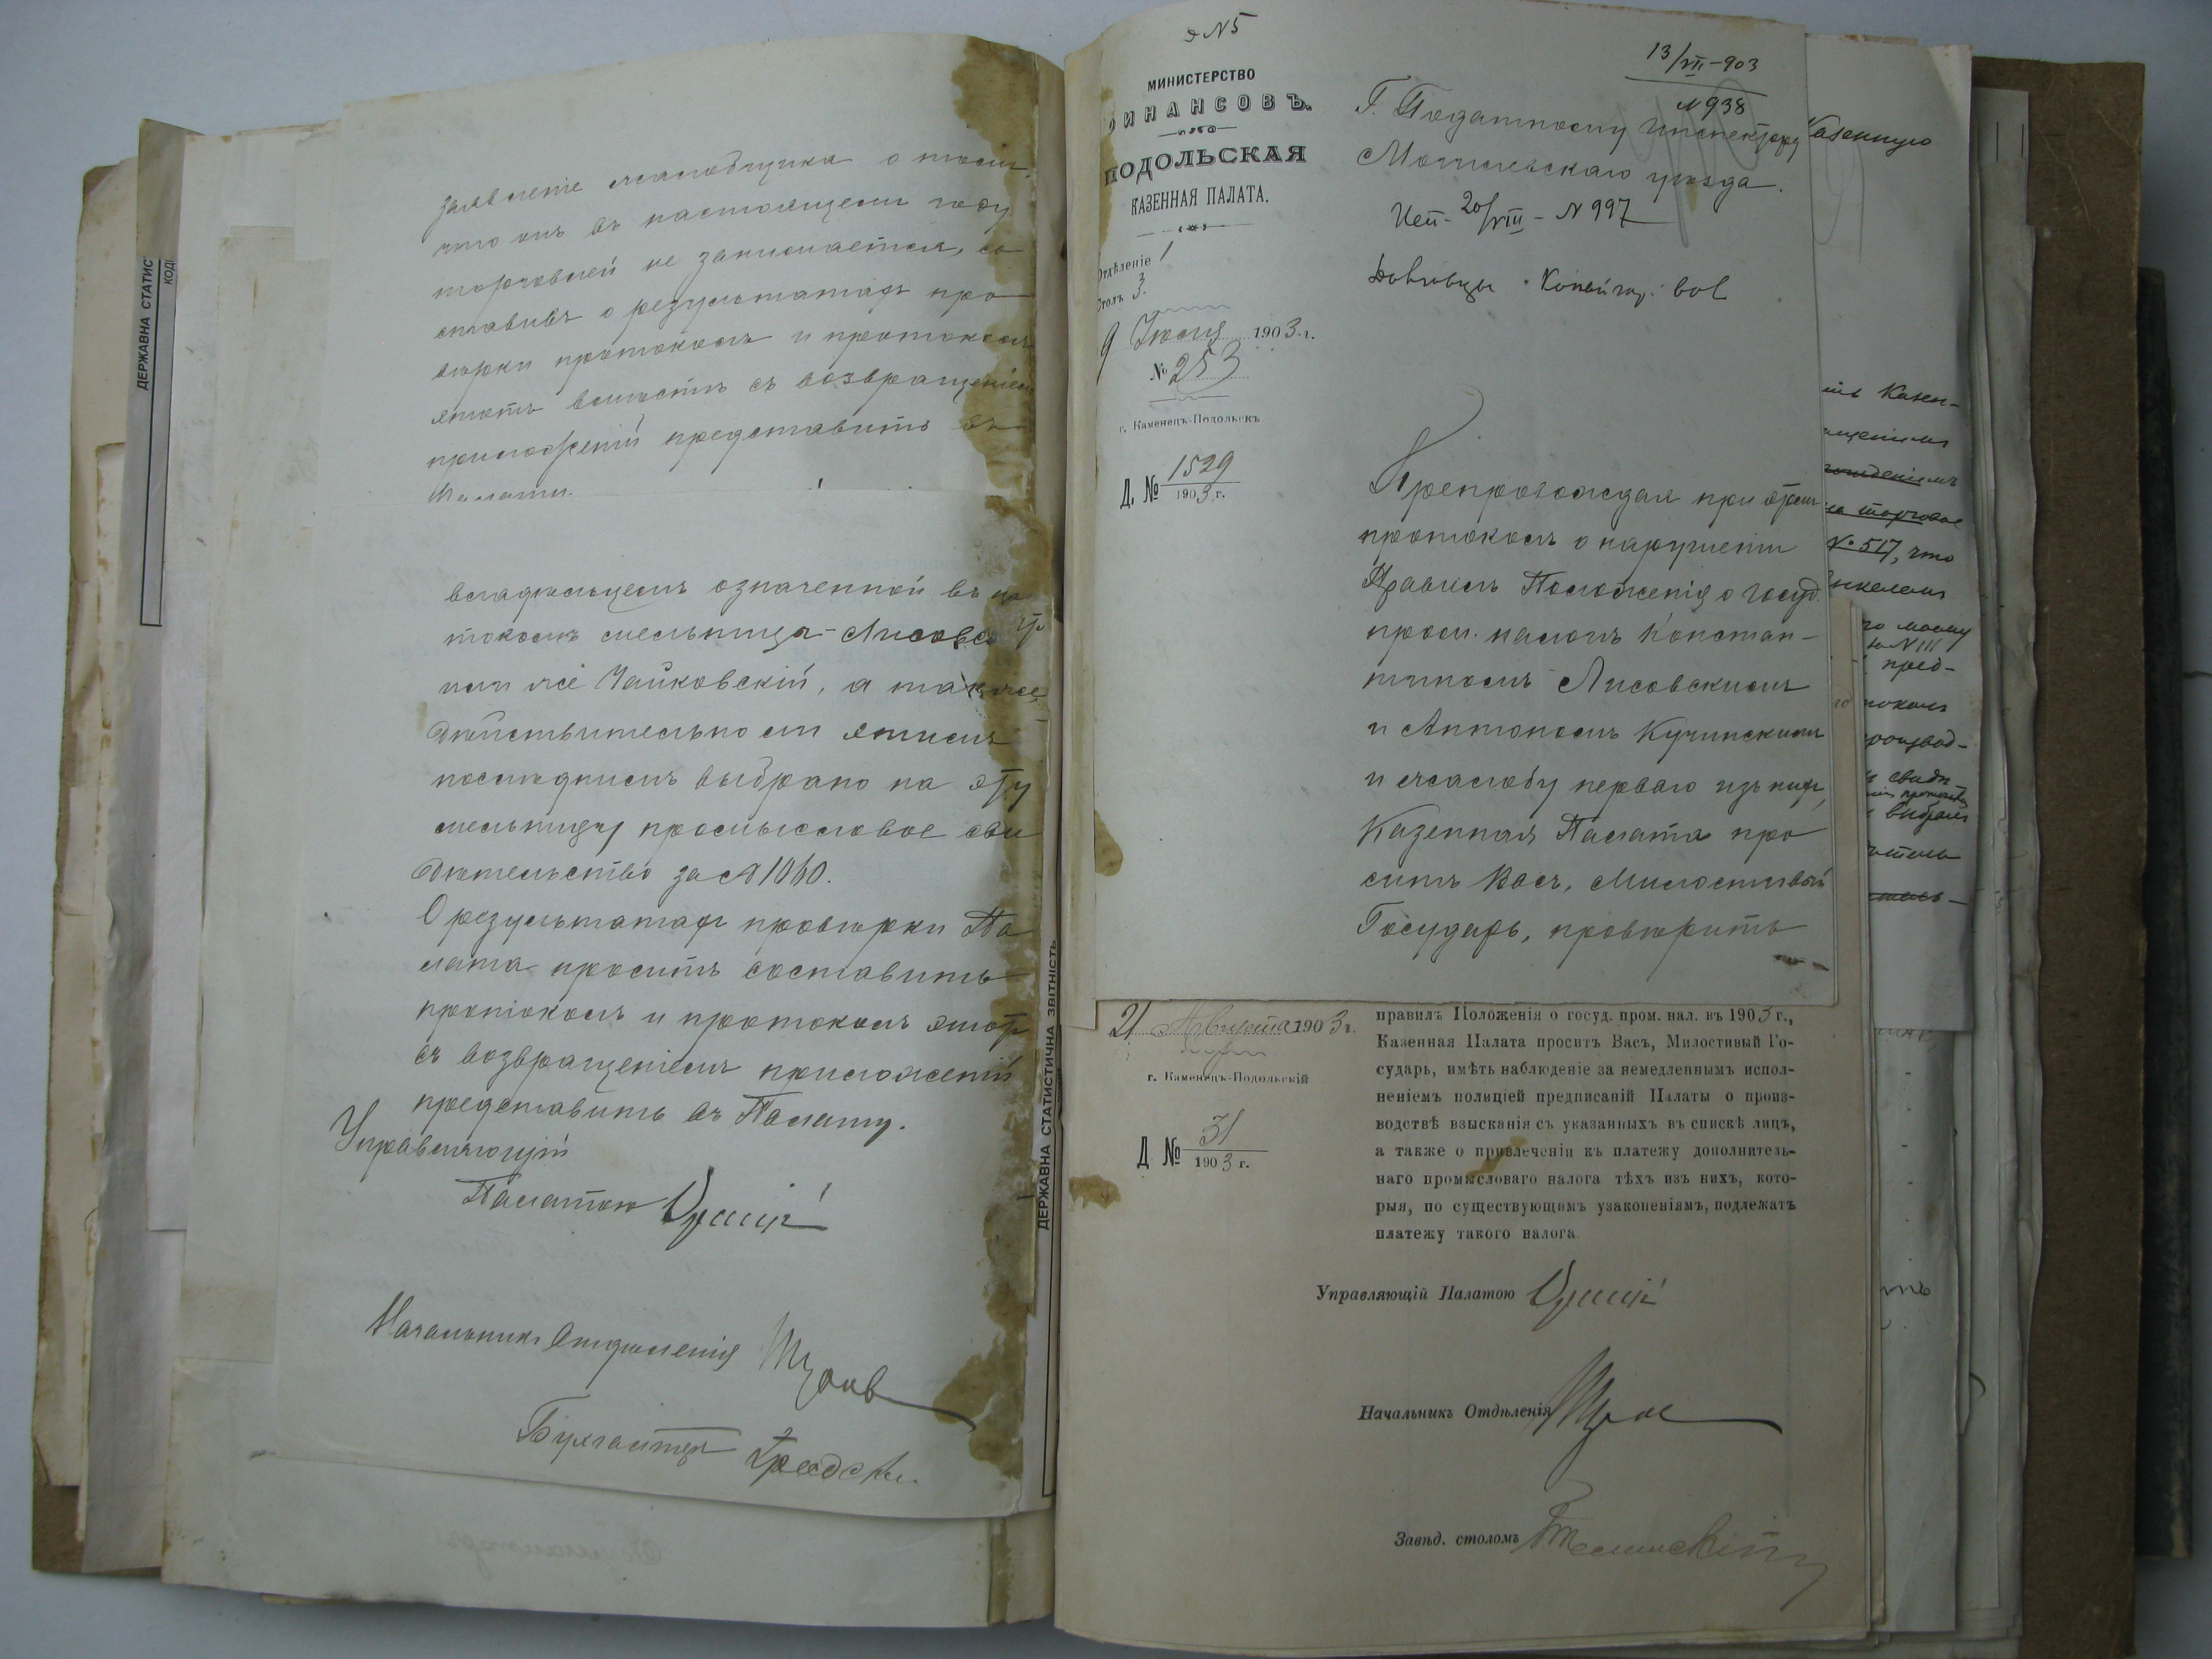 заявленіе жалобщика о томъ,
что онъ въ настоящемъ году
торговлей не занимается, со
ставивъ о результатахъ про
вѣрки протоколъ и протоколъ
этотъ вмѣстѣ съ возвращеніемъ
приложеній представить въ
Палату.
владѣльцемъ означенной въ про
токолѣ мельницы Лисовскій
или же Чайковскій, а также,
дѣйствительно ли этимъ
послѣднимъ выбрано на эту
мельницу промысловое сви
дѣтельство за № 1060.
О результатахъ провѣрки Па
лата проситъ составить
протоколъ и протоколъ этотъ
съ возвращеніемъ приложеній
представить въ Палату.
Управляющій
Палатою
Начальникъ Отдѣленія
Бухгалтеръ
ДЕРЖАВНА СТАТИС
КОДИ
ДЕРЖАВНА СТАТИСТИЧНА ЗВІТНІСТЬ
№ 5
МИНИСТЕРСТВО
ФИНАНСОВЪ.
ПОДОЛЬСКАЯ
КАЗЕННАЯ ПАЛАТА.
Отдѣленіе 1
Столъ 3.
9 Іюля 1903 г.
№ 253
г. Каменецъ-Подольскъ
Д. № 1529
1903 г.
13/VII-903
№ 938
Г. Податному Инспектору
Могилевскаго уѣзда.
Исп. 20/VIII - № 997
Препровождая при этомъ
протоколъ о нарушеніи
Правилъ Положенія о госуд.
пром. налогѣ Констан-
тиномъ Лисовскимъ
и Антономъ Кучинскимъ
и жалобу перваго изъ нихъ,
Казенная Палата про
ситъ Васъ, Милостивый
Государь, провѣрить
Казенную
Казен-
на торговое
№ 517, что
по моему
№ III
пред-
производ-
выбралъ
21 Августа 1903 г.
г. Каменецъ-Подольскій
Д № 31
1903 г.
правилъ Положенія о госуд. пром. нал. въ 1903 г.,
Казенная Палата проситъ Васъ, Милостивый Го-
сударь, имѣть наблюденіе за немедленнымъ испол-
неніемъ полиціей предписаній Палаты о произ-
водствѣ взысканія съ указанныхъ въ спискѣ лицъ,
а также о привлеченіи къ платежу дополнитель-
наго промысловаго налога тѣхъ изъ нихъ, кото-
рыя, по существующимъ узаконеніямъ, подлежатъ
платежу такого налога.
Управляющій Палатою
Начальникъ Отдѣленія
Завѣд. столомъ